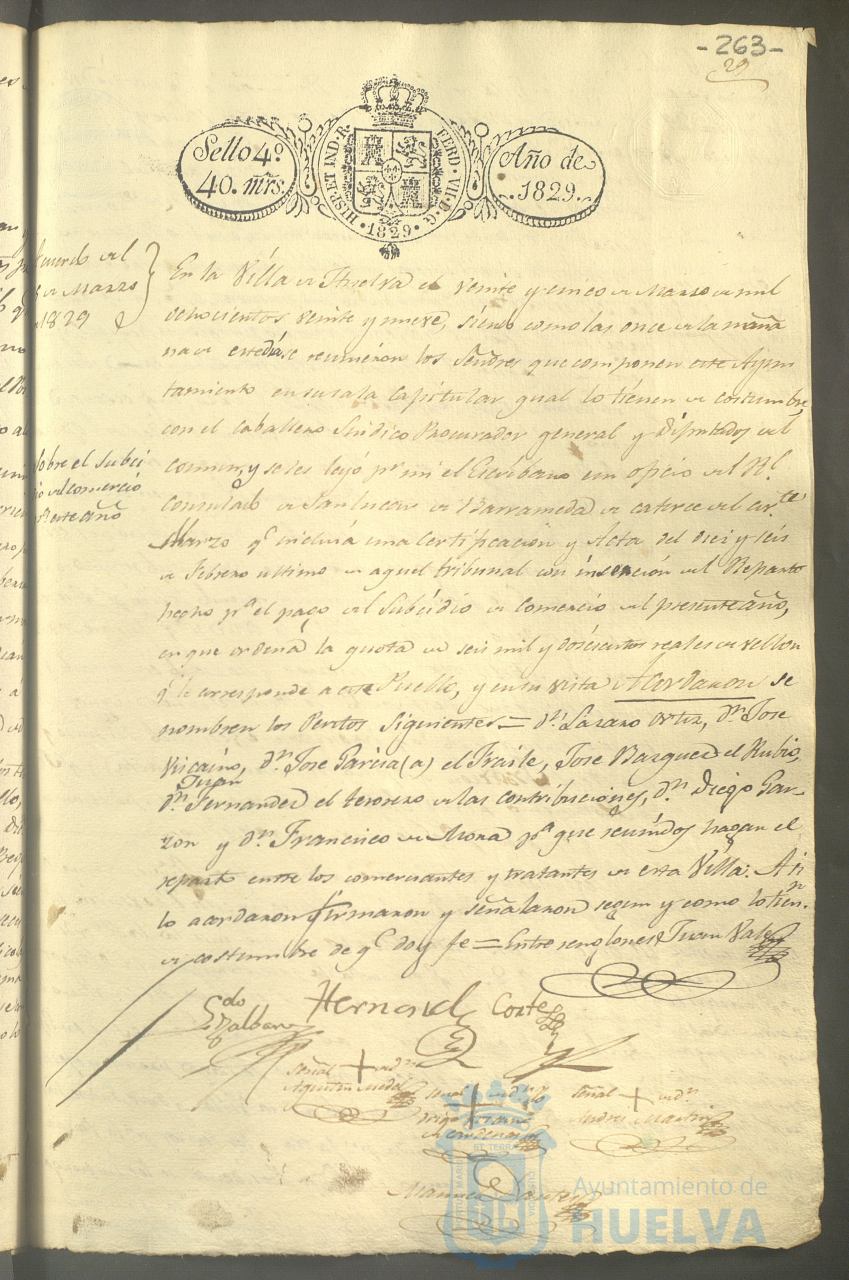 -263-
29
Sello 4.º
40. mrs.
HISP. ET IND. R.
FERD. VII. D. G.
1829
Año de
1829.
Acuerdo del
de Marzo
1829
En la Villa de Huelva el veinte y cinco de Marzo de mil
ochocientos veinte y nueve, siendo como las once de la maña
na de este dia se reunieron los Señores que componen este Ayun
tamiento en su sala Capitular qual lo tienen de costumbre,
con el Caballero Sindico Procurador general y Diputados del
Comun, y se les leyó pr mi el Escribano un oficio del Rl.
Consulado de Sanlucar de Barrameda de catorce del corte
Marzo qe incluía una Certificacion y Acta del diez y seis
de Febrero ultimo de aquel tribunal con insercion del Reparto
hecho pa el pago del Subsidio de Comercio del presente año,
en que ordena la quota de seis mil y doscientos reales de vellon
qe le corresponde a este Pueblo, y en su vista Acordaron se
nombren los Peritos siguientes = Dn. Lazaro Ortiz, Dn. Jose
Vizcaino, Dn. Jose Garcia (a) el Fraile, Jose Bazquez el Rubio,
Juan
Dn. Fernandez el tesorero de las contribuciones, Dn. Diego Gar-
zon y Dn. Francisco de Mora pa que reunidos hagan el
reparto entre los comerciantes y tratantes de esta Villa. Asi
lo acordaron firmaron y señalaron segun y como lo tienn
de costumbre de qe doy fe = Entre renglones Juan Vale
sobre el subci
dio del comercio
pa este año
Hernand Corte
Señal + de Dn
Agustin
Señal + de Dn
Diego
Señal + de Dn
Andres Martin
Manuel
Ayuntamiento de
HUELVA